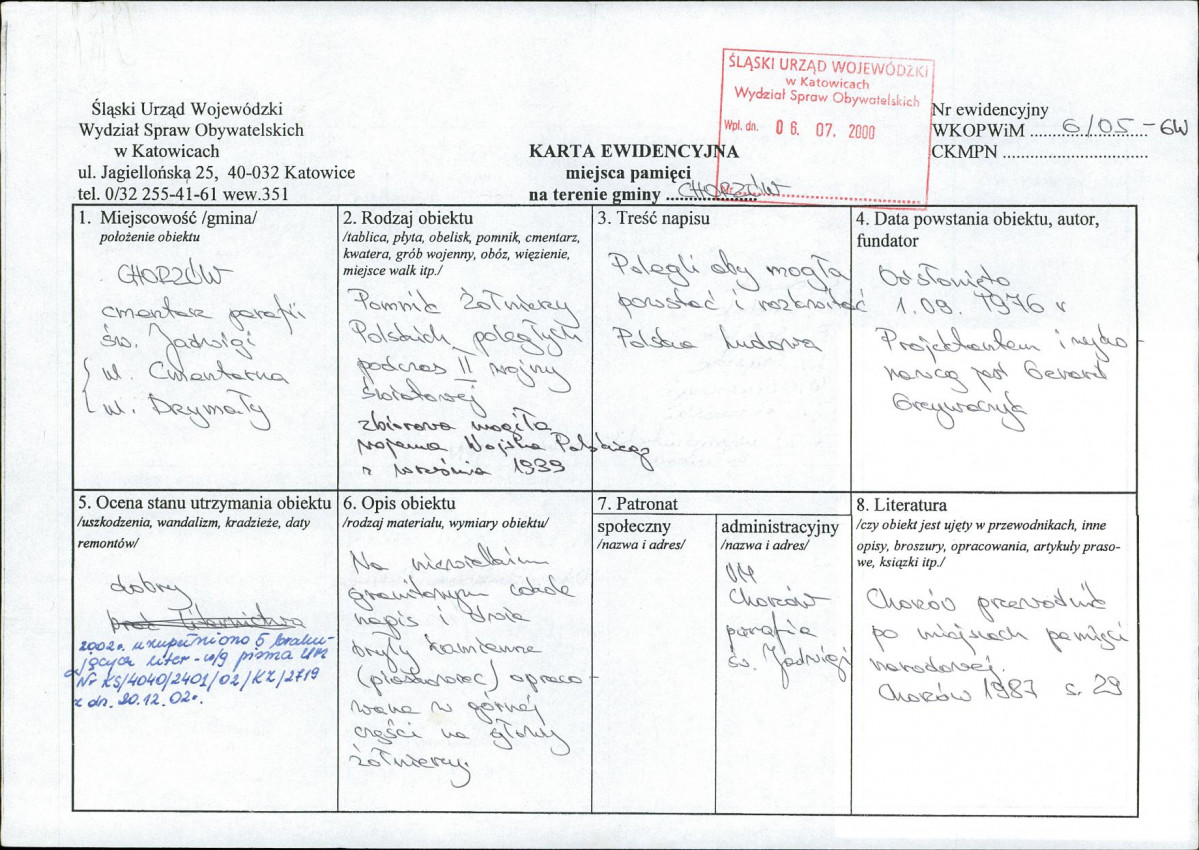 ŚLĄSKI URZĄD WOJEWÓDZKI
w Katowicach
Wydział Spraw Obywatelskich
Wpł. dn. 06. 07. 2000
Śląski Urząd Wojewódzki
Wydział Spraw Obywatelskich
w Katowicach
ul. Jagiellońska 25, 40-032 Katowice
tel. 0/32 255-41-61 wew.351
KARTA EWIDENCYJNA
miejsca pamięci
na terenie gminy CHORZÓW
Nr ewidencyjny
WKOPWiM 6/05-6W
CKMPN
1. Miejscowość /gmina/
położenie obiektu
CHORZÓW
cmentarz parafii
św. Jadwigi
ul. Cmentarna
ul. Drzymały
2. Rodzaj obiektu
/tablica, płyta, obelisk, pomnik, cmentarz,
kwatera, grób wojenny, obóz, więzienie,
miejsce walk itp./
Pomnik Żołnierzy
Polskich poległych
podczas II wojny
światowej
zbiorowa mogiła
Wojska Polskiego
z września 1939
3. Treść napisu
Polegli aby mogła
powstać i rozkwitać
Polska Ludowa
4. Data powstania obiektu, autor,
fundator
Odsłonięto
1.09.1976 r
Projektantem i wyko-
nawcą jest Gerard
Grzywaczyk
5. Ocena stanu utrzymania obiektu
/uszkodzenia, wandalizm, kradzieże, daty
remontów/
dobry
2002r. uzupełniono 5 braku-
jących liter - w/g pisma UM
Nr KS/4040/2401/02/KZ/2719
z dn. 20.12.02r.
6. Opis obiektu
/rodzaj materiału, wymiary obiektu/
Na niewielkim
granitowym cokole
napis i dwie
bryły kamienne
(piaskowiec) opraco-
wane w górnej
części na głowy
żołnierzy.
7. Patronat
społeczny
/nazwa i adres/
administracyjny
/nazwa i adres/
UM
Chorzów
parafia
św. Jadwigi
8. Literatura
/czy obiekt jest ujęty w przewodnikach, inne
opisy, broszury, opracowania, artykuły praso-
we, książki itp./
Chorzów przewodnik
po miejscach pamięci
narodowej.
Chorzów 1987 s. 29